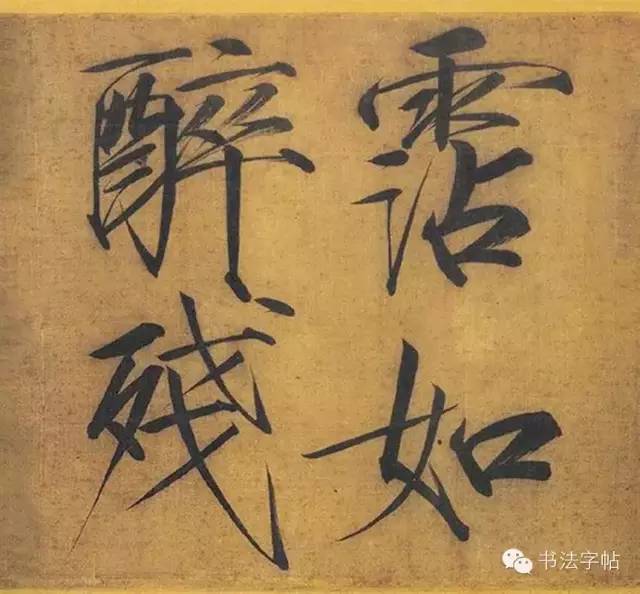 霑如
醉殘
书法字帖